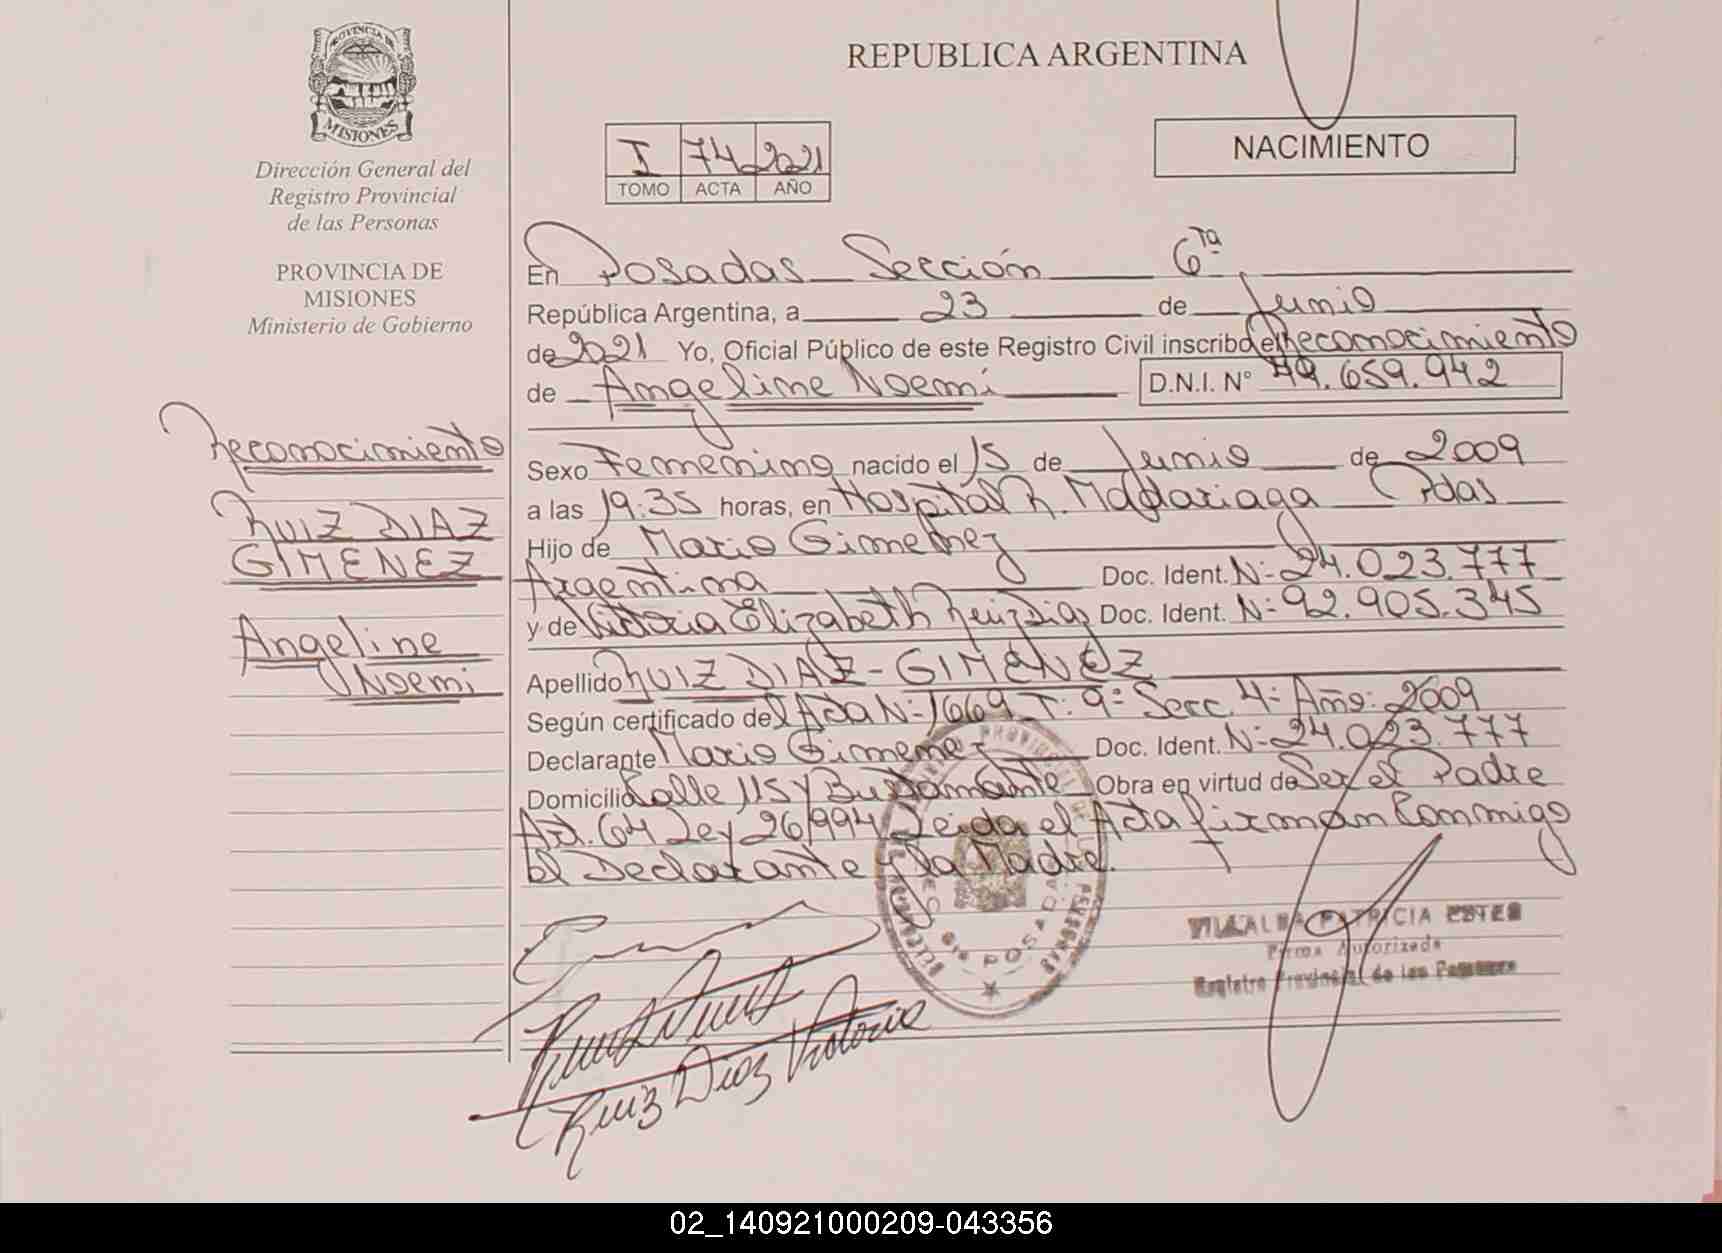 PROVINCIA DE
MISIONES
Dirección General del
Registro Provincial
de las Personas
PROVINCIA DE
MISIONES
Ministerio de Gobierno
Reconocimiento
RUIZ DIAZ
GIMENEZ
Angeline
Noemi
REPUBLICA ARGENTINA
I 74 2021
TOMO ACTA AÑO
NACIMIENTO
En Posadas Sección 6ta
República Argentina, a 23 de Junio
de 2021 Yo, Oficial Público de este Registro Civil inscribo el Reconocimiento
de Angeline Noemi D.N.I. N° 49.659.942
Sexo Femenino nacido el 15 de Junio de 2009
a las 19:35 horas, en Hospital R. Madariaga Pdas
Hijo de Mario Gimenez
Argentina Doc. Ident. Nº 24.023.777
y de Victoria Elizabeth Ruiz Diaz Doc. Ident. Nº 92.905.345
Apellido RUIZ DIAZ - GIMENEZ
Según certificado del Acta Nº 1669 T: 9º Secc. 4º Año: 2009
Declarante Mario Gimenez Doc. Ident. Nº 24.023.777
Domicilio Calle 115 y Bustamante Obra en virtud de Ser el Padre
Art. 64 Ley 26/994 Leida el Acta firman Conmigo
El Declarante y la Madre.
POSADAS
VILLALBA PATRICIA ESTER
Firma Autorizada
Registro Provincial de las Personas
Ruiz Diaz Victoria
02_140921000209-043356